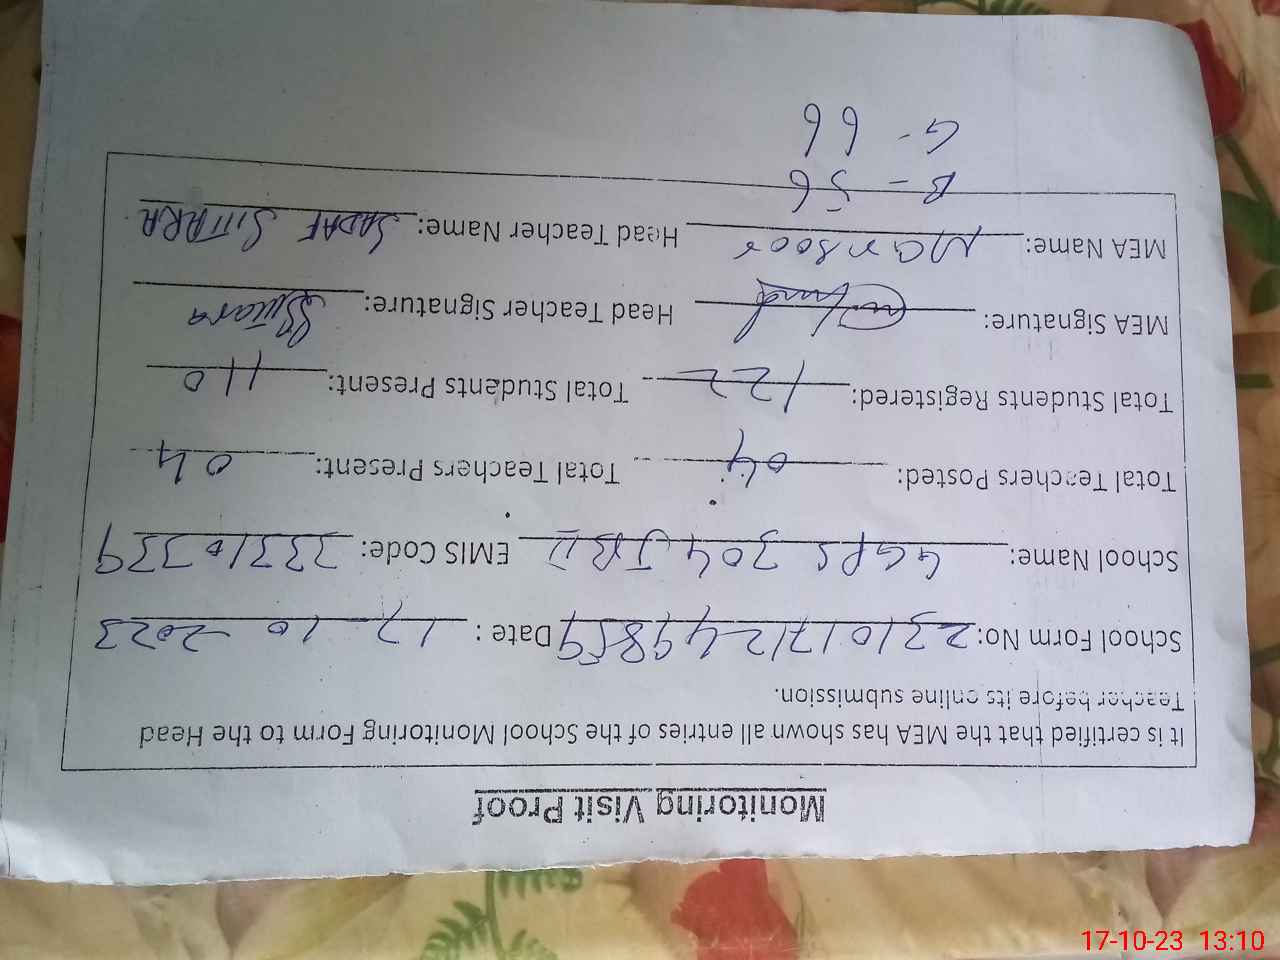 Monitoring Visit Proof
It is certified that the MEA has shown all entries of the School Monitoring Form to the Head
Teacher before its online submission.
School Form No: 23101712449859 Date : 17-10-2023
School Name: GGPS 304 JB II EMIS Code: 33310339
Total Teachers Posted: 04 Total Teachers Present: 04
Total Students Registered: 122 Total Students Present: 110
MEA Signature: Head Teacher Signature: Sitara
MEA Name: Mansoor Head Teacher Name: SADAF SITARA
B - 56
G - 66
17-10-23 13:10